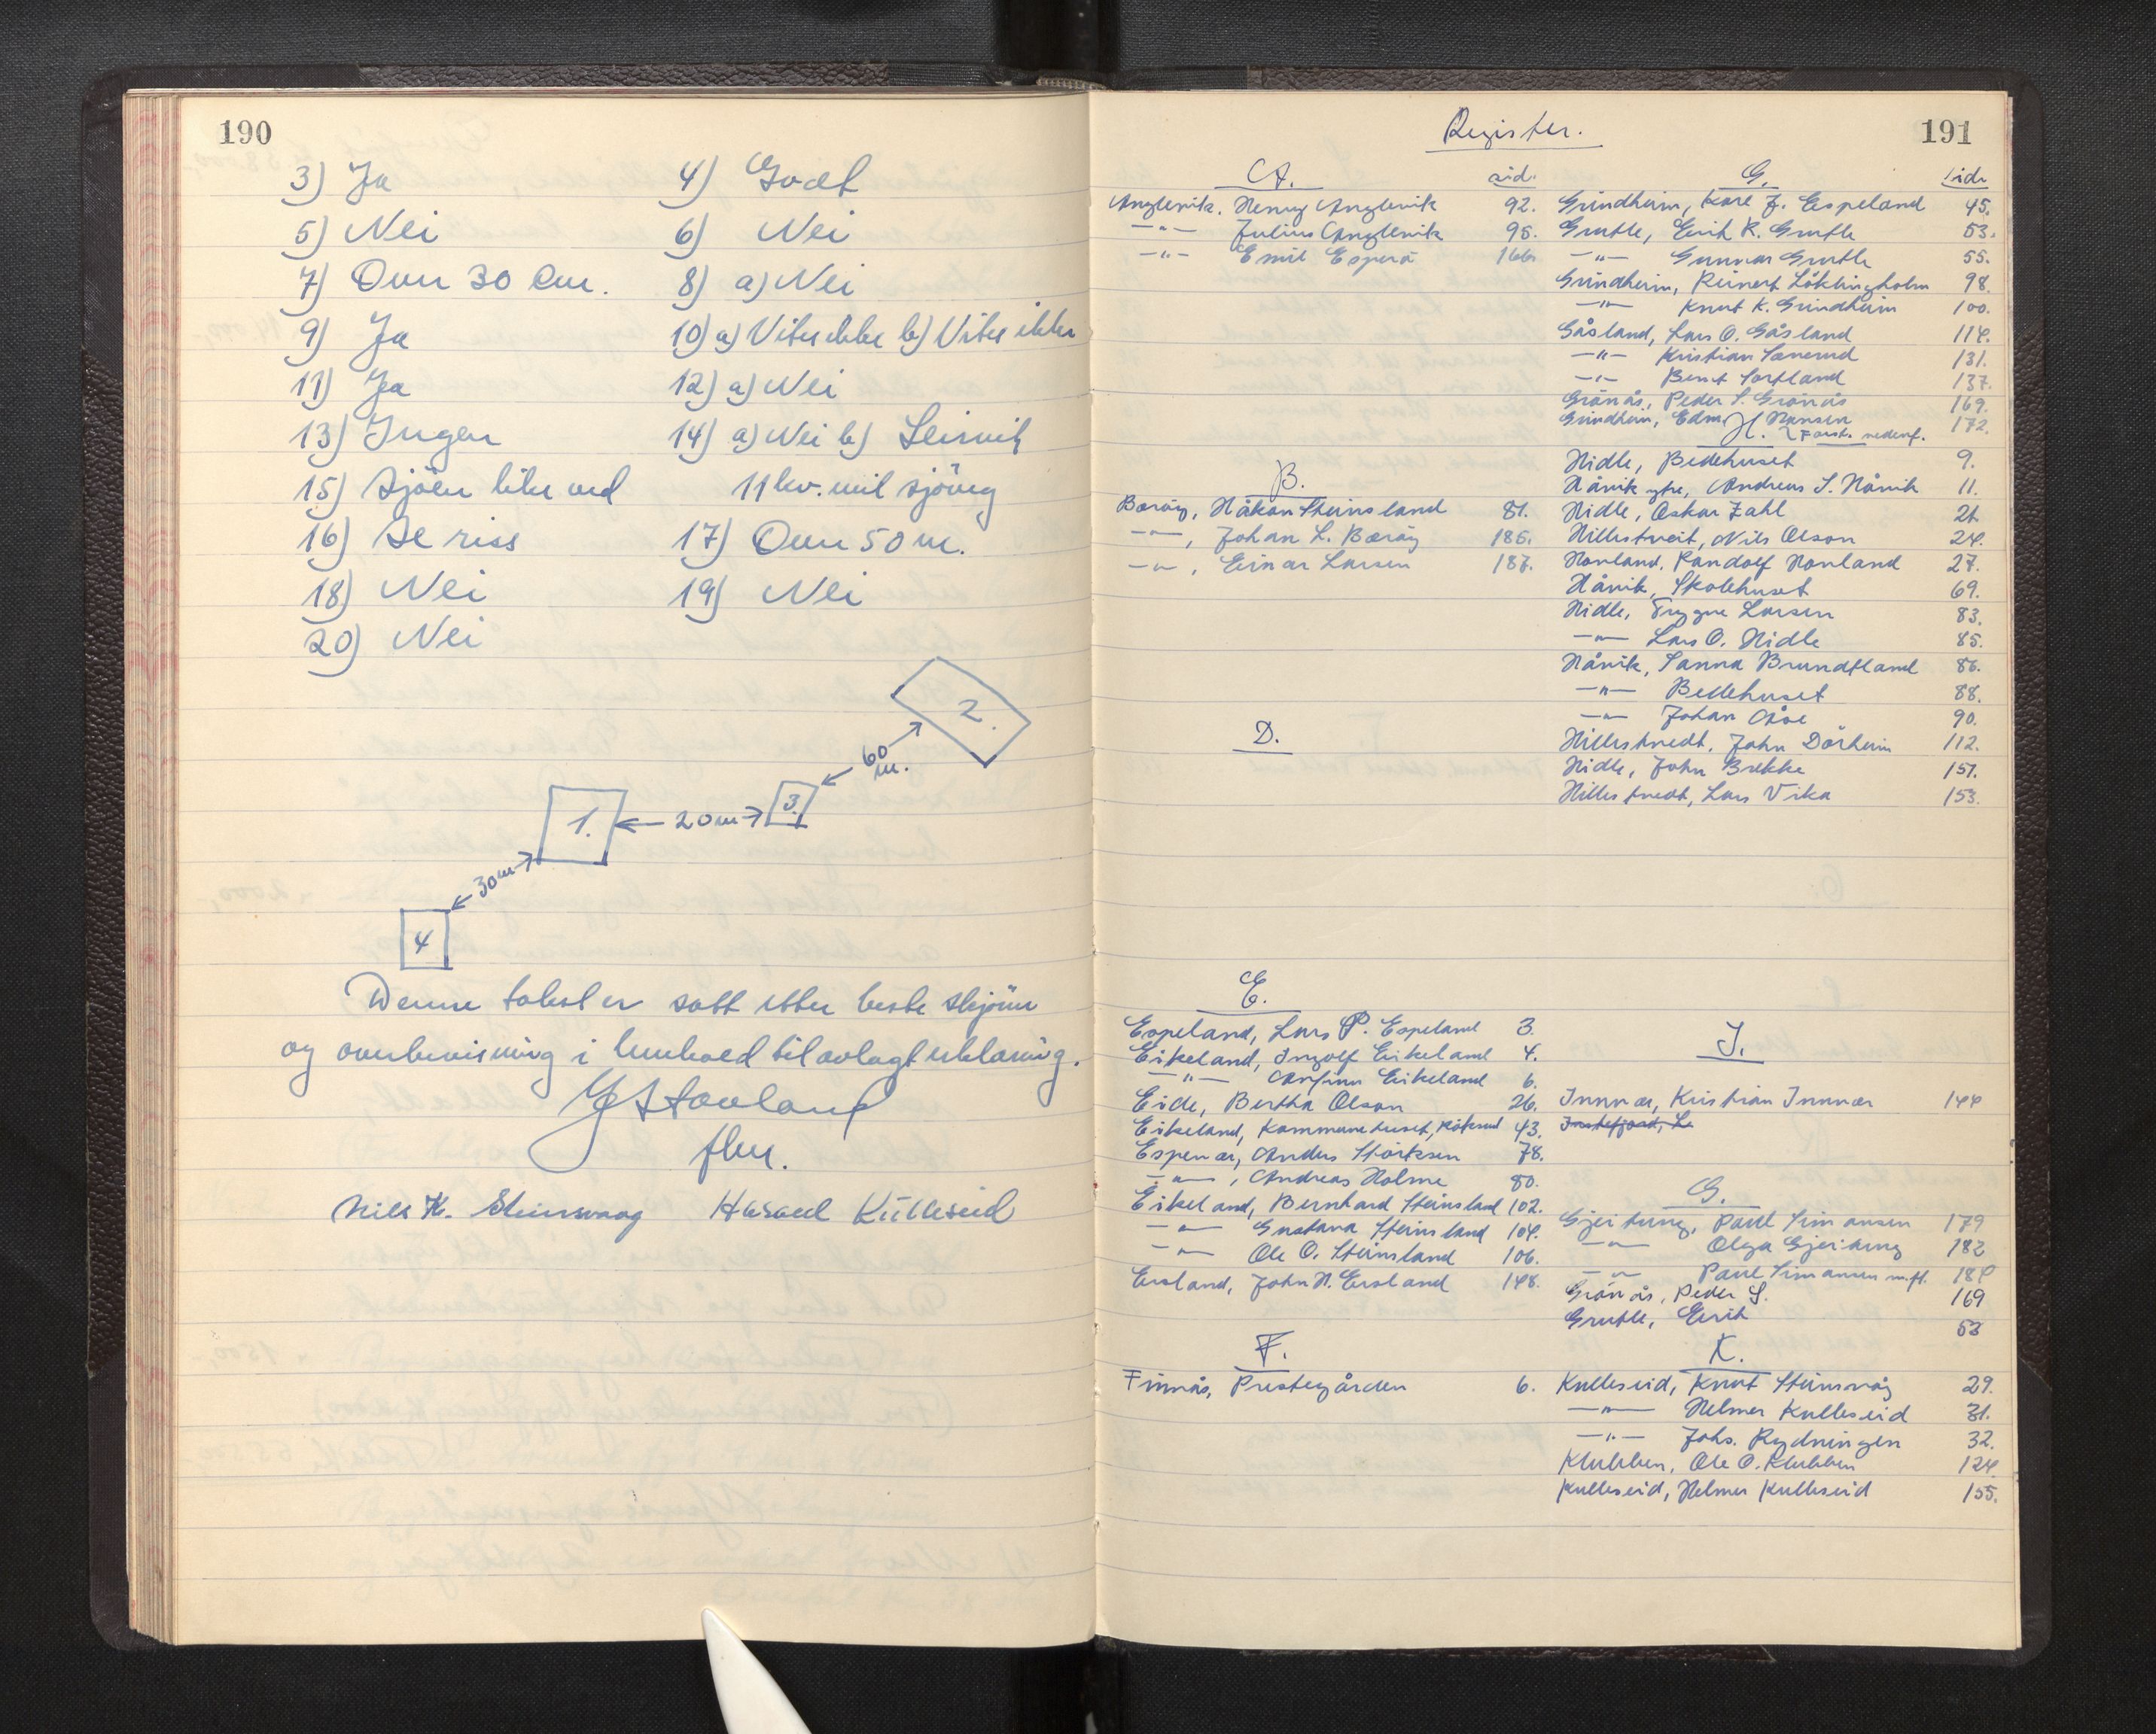 190
3) Ja 4) Godt
5) Nei 6) Nei
7) Over 30 cm. 8) a) Nei
9) Ja 10) a) Vites ikke b) Vites ikke
11) Ja 12) a) Nei
13) Ingen 14) a) Nei b) Leirvik
15) Sjöen like ved 11 kv. mil sjöveg
16) Se riss 17) Over 50 m.
18) Nei 19) Nei
20) Nei
2.
60 m.
3.
20 m
1.
30 m
4
Denne takst er satt etter beste skjönn
og overbevisning i henhold til avlagt erklæring.
fhv.
Nils K. Steinsvaag Harald Kulleseid
191
Register.
A. sid.
Anglevik. Henry Anglevik 92.
—"— Julius Anglevik 95.
—"— Emil Esperø 166.
B.
Barøy, Håkon Steinsland 81.
—"—, Johan L. Barøy 185.
—"—, Einar Larsen 187.
D.
E.
Espeland, Lars P. Espeland 3.
Eikeland, Ingolf Eikeland 4.
—"— Arfinn Eikeland 6.
Eide, Bertha Olson 26.
Eikeland, Kommunehuset, 43.
Espenær, Anders Störksen 78.
—"—, Andreas Holme 80.
Eikeland, Bernhard Steinsland 102.
—"— Gustava Steinsland 104.
—"— Ole O. Steinsland 106.
Ersland, John H. Ersland 148.
F.
Finnås, Prestegården 6.
G. side
Grindheim, Kåre J. Espeland 45.
Grutle, Eirik K. Grutle 53.
—"— Gunnar Grutle 55.
Grindheim, Reinert Löklingholm 98.
—"— Knut K. Grindheim 100.
Gåsland, Lars O. Gåsland 114.
—"— Kristian Sænerud 131.
—"— Bernt Sortland 137.
Grönås, Peder S. Grönås 169.
Grindheim, Edm. Hansen 172.
H. Forts. nedenf.
Hidle, Bedehuset 9.
Håvik ytre, Andreas S. Håvik 11.
Hidle, Oskar Zahl 21.
Hillestveit, Nils Olson 24.
Hovland, Randolf Hovland 27.
Håvik, Skolehuset 69.
Hidle, Trygve Larsen 83.
—"— Lars O. Hidle 85.
Håvik, Sanna Brundtland 86.
—"— Bedehuset 88.
—"— Johan Åse 90.
Hillestvedt, John Dörheim 112.
Hidle, John Brekke 151.
Hillestvedt, Lars Vika 153.
I.
Innvær, Kristian Innvær 144
Innstefjord, L.
G.
Gjeitung, Paul Simonsen 179
—"— Olga Gjeitung 182
—"— Paul Simonsen m.fl. 184
Grönås, Peder S. 169
Grutle, Eirik 53
K.
Kulleseid, Knut Steinsvåg 29.
—"— Helmer Kulleseid 31.
—"— Johs. Rydningen 32.
Klubben, Ole O. Klubben 124.
Kulleseid, Helmer Kulleseid 155.